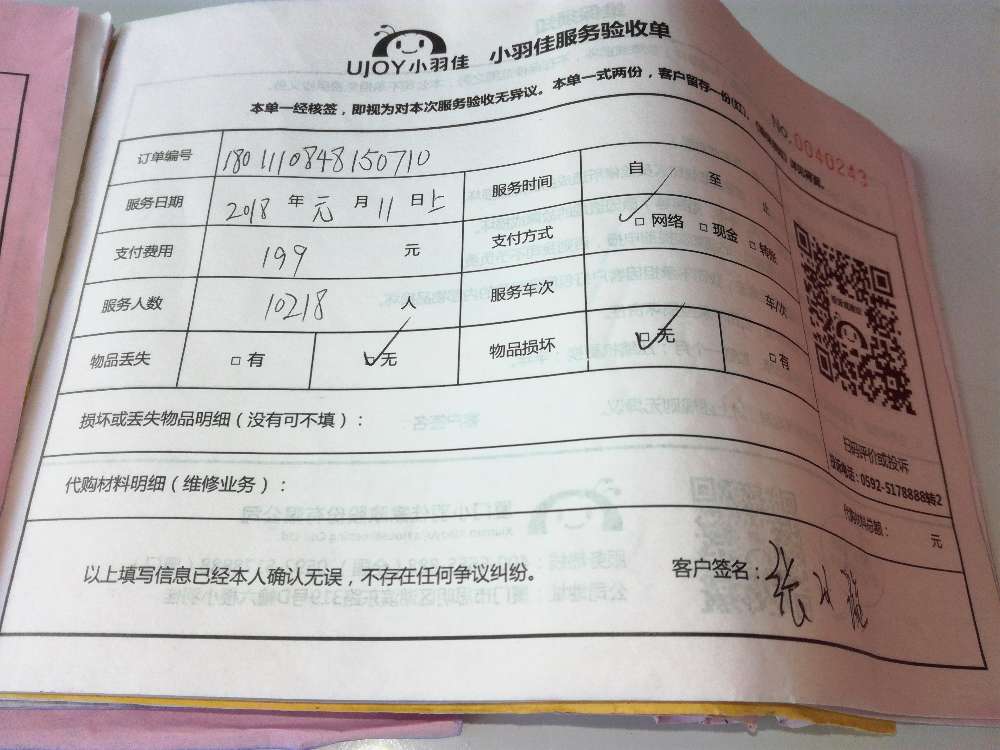 UJOY小羽佳 小羽佳服务验收单
本单一经核签，即视为对本次服务验收无异议。本单一式两份，客户留存一份(红)，
NO.0040243
订单编号 1801110848150710
服务日期 2018 年 元 月 11 日上 服务时间 自 至 止
支付费用 199 元 支付方式 □网络 □现金 □转账
服务人数 10218 人 服务车次 车/次
物品丢失 □有 □无 物品损坏 □无 □有
损坏或丢失物品明细（没有可不填）：
扫码评价或投诉
投诉电话：0592-5178888转2
代购材料明细（维修业务）： 代购材料总额： 元
以上填写信息已经本人确认无误，不存在任何争议纠纷。 客户签名：张